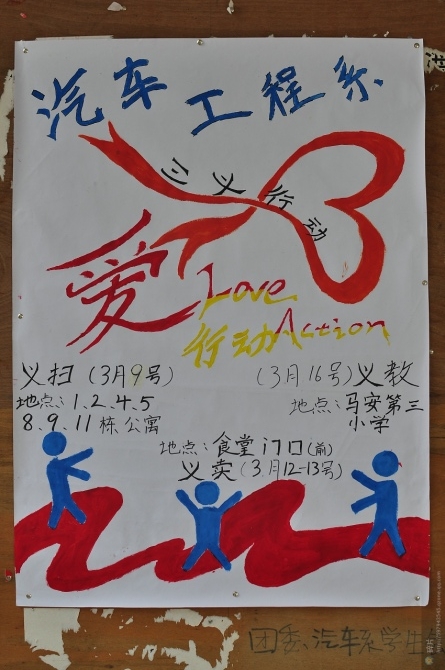 汽车工程系
三义行动
爱 Love
行动 Action
义扫(3月9号)
地点:1.2.4.5
8.9.11栋公寓
(3月16号)义教
地点:马安第三
小学
地点:食堂门口(前)
义卖(3月12-13号)
团委、汽车系学生